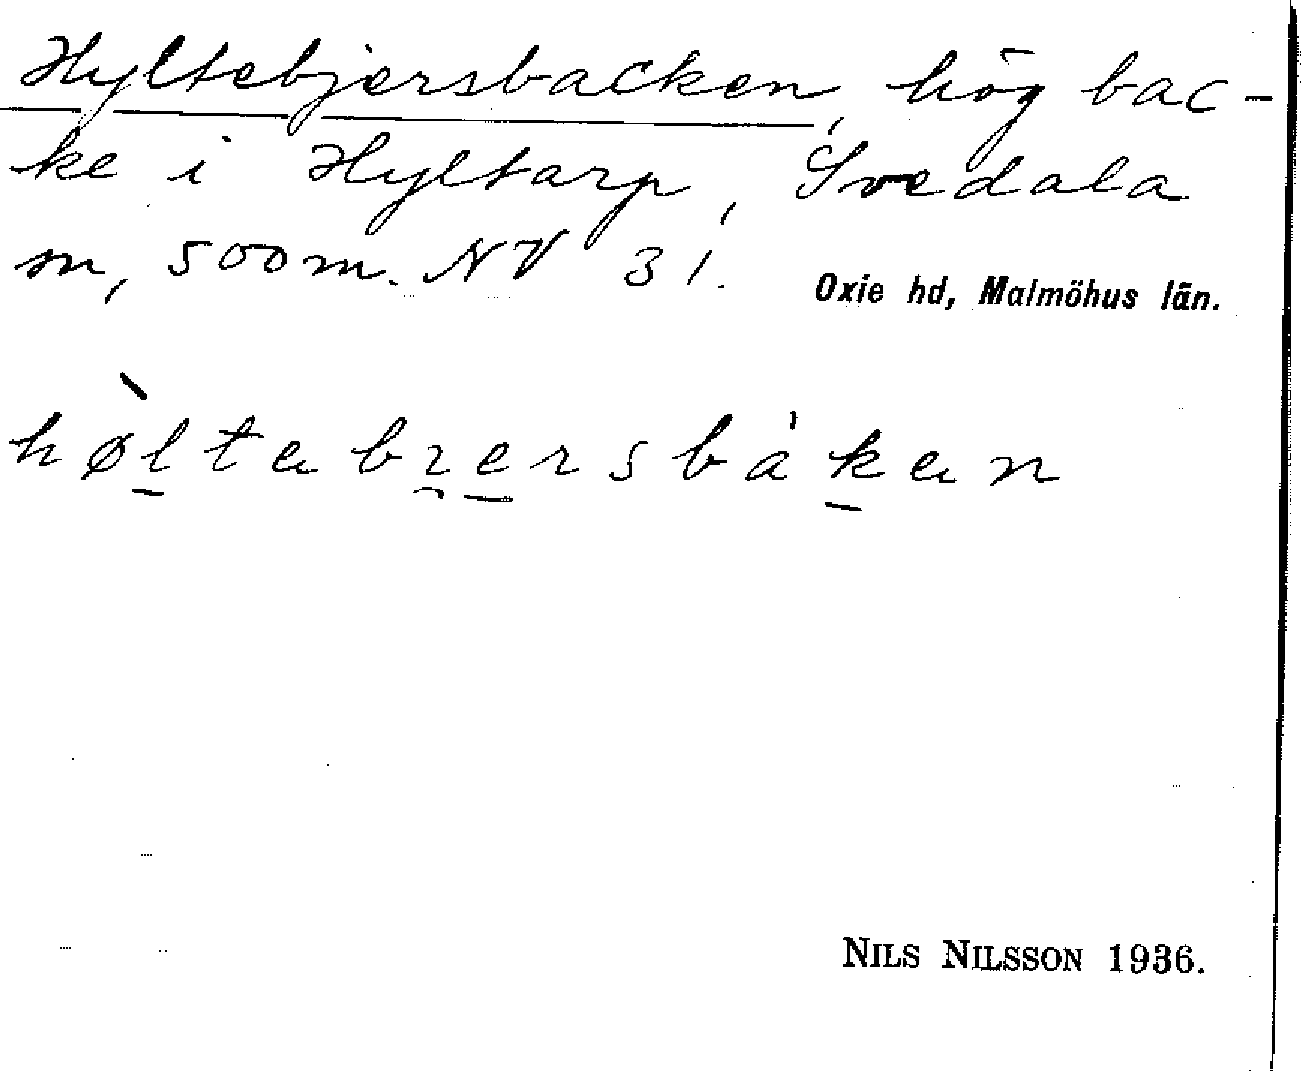 Hyltebjersbacken, hög bac-
ke i Hyltarp, Svedala
sn, 500 m. NV 31.
Oxie hd, Malmöhus län.
hø̀ltabɿersbákan
NILS NILSSON 1936.